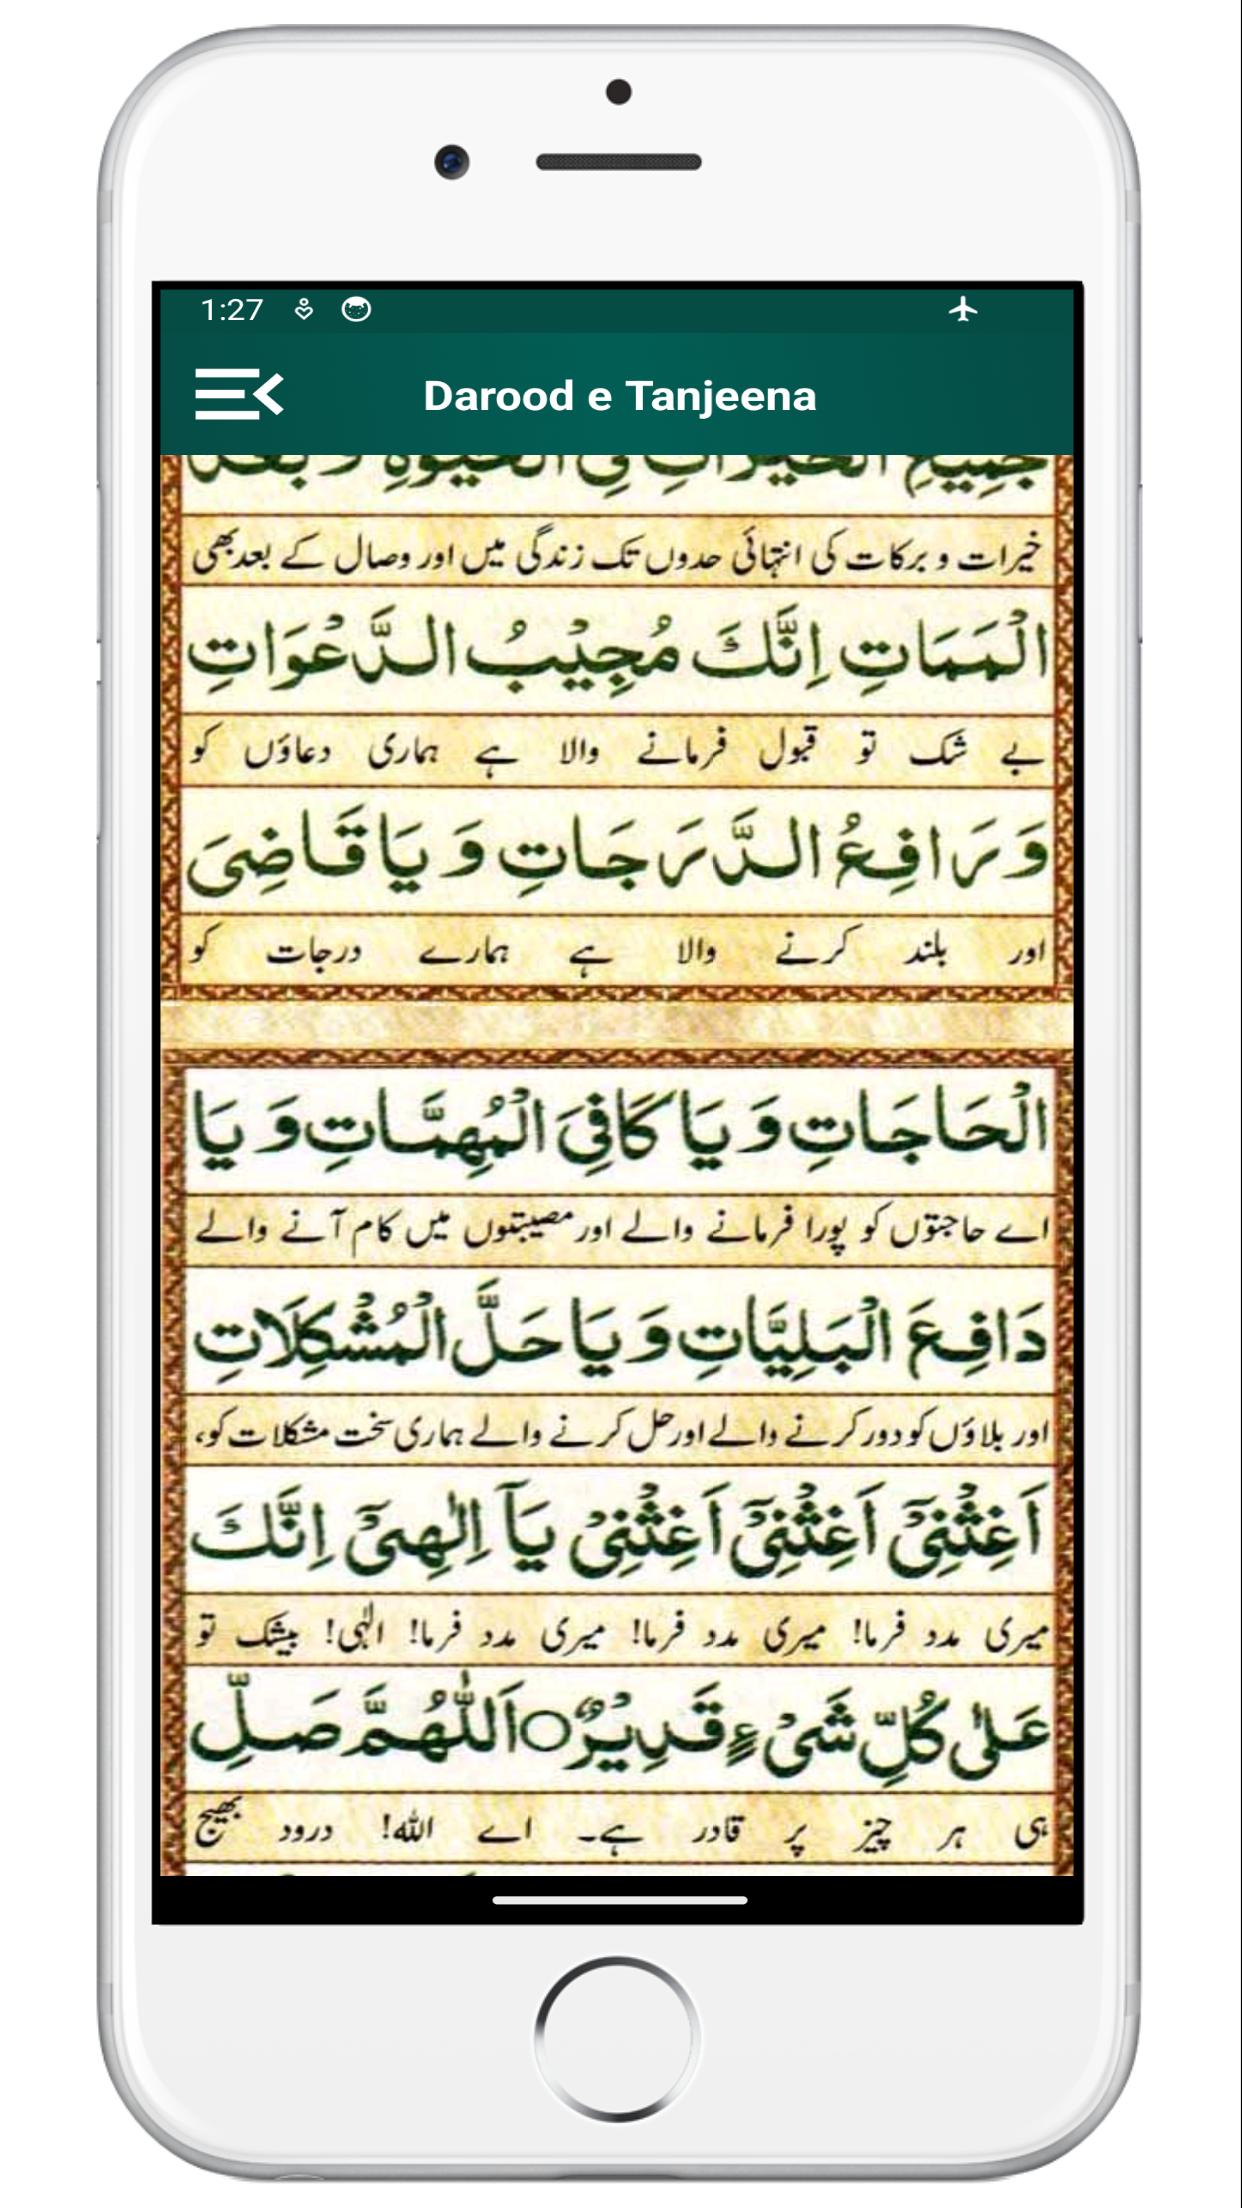 1:27
Darood e Tanjeena
جَمِيْعِ الْخَيْرَاتِ فِي الْحَيٰوةِ وَ بَعْدَ
خیرات و برکات کی انتہائی حدوں تک زندگی میں اور وصال کے بعد بھی
الْمَمَاتِ اِنَّكَ مُجِيْبُ الدَّعْوَاتِ
بے شک تو قبول فرمانے والا ہے ہماری دعاؤں کو
وَ رَافِعُ الدَّرَجَاتِ وَ يَا قَاضِىَ
اور بلند کرنے والا ہے ہمارے درجات کو
الْحَاجَاتِ وَ يَا كَافِىَ الْمُهِمَّاتِ وَ يَا
اے حاجتوں کو پورا فرمانے والے اور مصیبتوں میں کام آنے والے
دَافِعَ الْبَلِيَّاتِ وَ يَا حَلَّ الْمُشْكِلَاتِ
اور بلاؤں کو دور کرنے والے اور حل کرنے والے ہماری سخت مشکلات کو،
اَغِثْنِىْٓ اَغِثْنِىْٓ اَغِثْنِىْ يَآ اِلٰهِىْٓ اِنَّكَ
میری مدد فرما! میری مدد فرما! میری مدد فرما! الٰہی! بیشک تو
عَلٰى كُلِّ شَىْءٍ قَدِيْرٌ○ اَللّٰهُمَّ صَلِّ
ہی ہر چیز پر قادر ہے۔ اے اللہ! درود بھیج